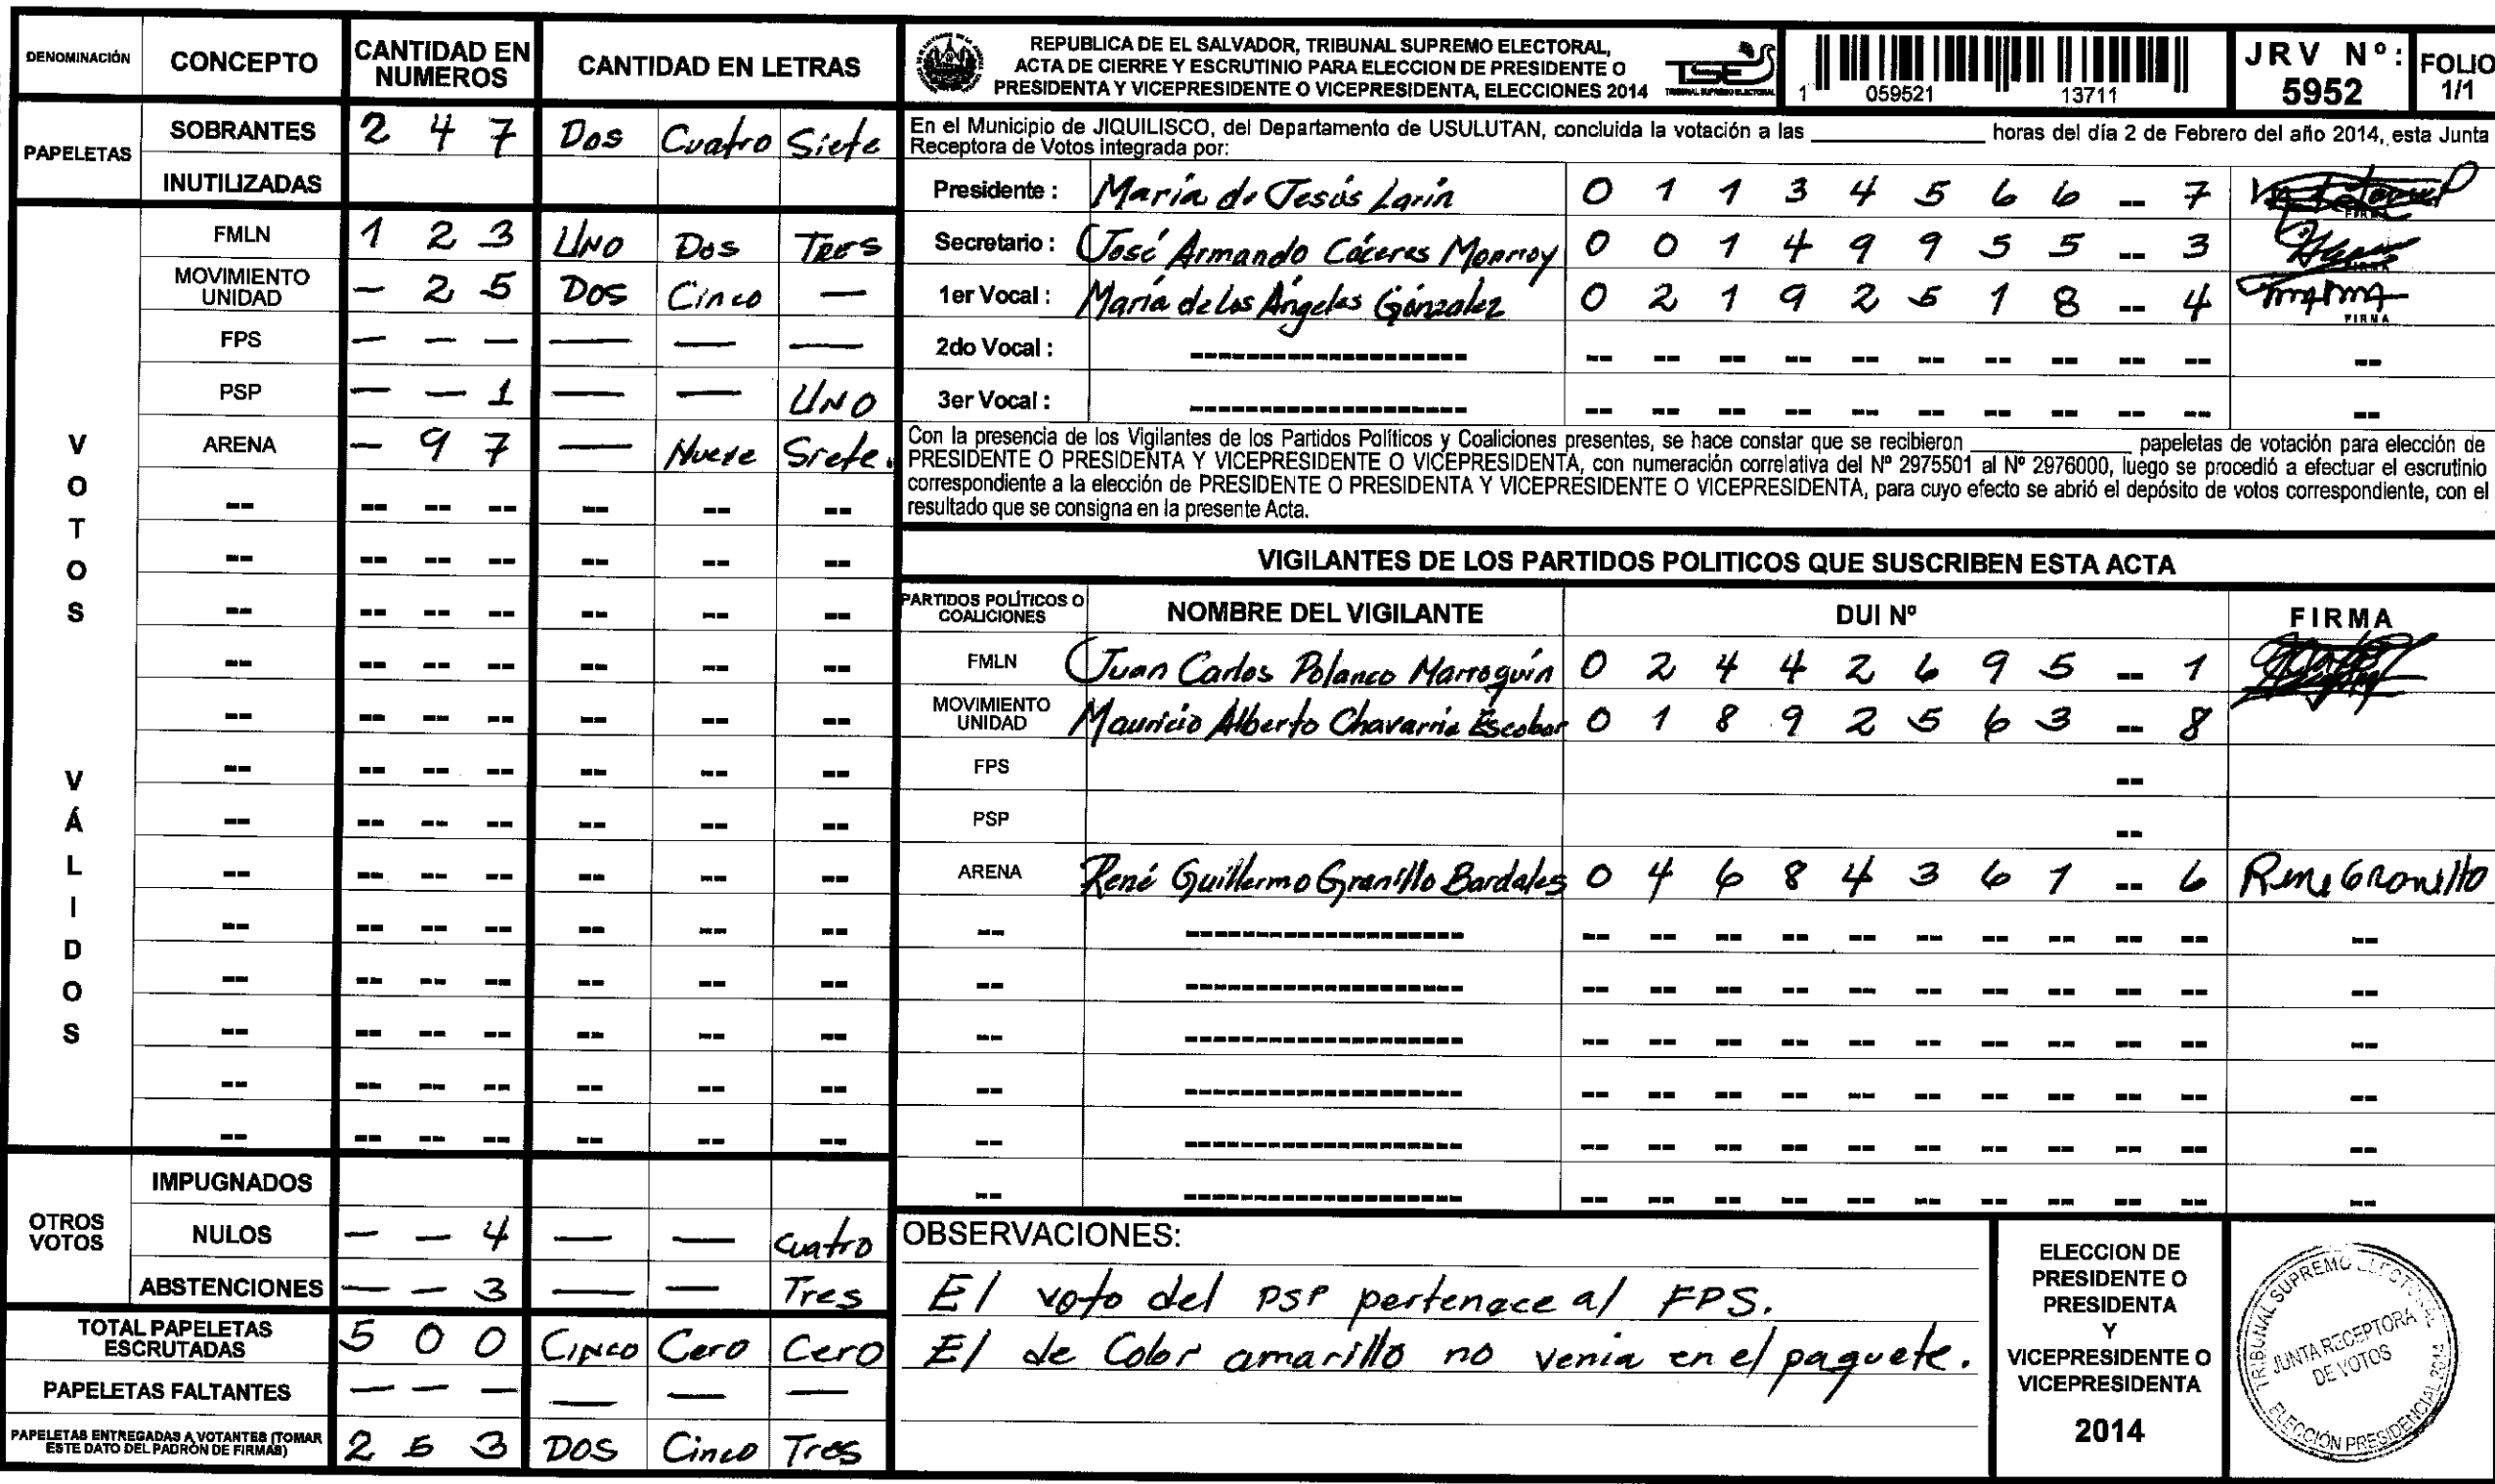 DENOMINACIÓN CONCEPTO CANTIDAD EN NUMEROS CANTIDAD EN LETRAS
PAPELETAS SOBRANTES 2 4 7 Dos Cuatro Siete
INUTILIZADAS
VOTOS VÁLIDOS
FMLN 1 2 3 UNO Dos TRES
MOVIMIENTO UNIDAD - 2 5 Dos Cinco —
FPS — — — — — —
PSP — — 1 — — UNO
ARENA - 9 7 — Nueve Siete.
OTROS VOTOS
IMPUGNADOS
NULOS — — 4 — — cuatro
ABSTENCIONES — — 3 — — Tres
TOTAL PAPELETAS ESCRUTADAS 5 0 0 Cinco Cero Cero
PAPELETAS FALTANTES — — — — — —
PAPELETAS ENTREGADAS A VOTANTES (TOMAR ESTE DATO DEL PADRÓN DE FIRMAS) 2 5 3 DOS Cinco Tres
REPUBLICA DE EL SALVADOR, TRIBUNAL SUPREMO ELECTORAL,
ACTA DE CIERRE Y ESCRUTINIO PARA ELECCION DE PRESIDENTE O
PRESIDENTA Y VICEPRESIDENTE O VICEPRESIDENTA, ELECCIONES 2014
TSE
TRIBUNAL SUPREMO ELECTORAL
1 059521 13711
JRV Nº: 5952
FOLIO 1/1
En el Municipio de JIQUILISCO, del Departamento de USULUTAN, concluida la votación a las ________ horas del día 2 de Febrero del año 2014, esta Junta
Receptora de Votos integrada por:
Presidente : María de Jesús Larín 0 1 1 3 4 5 6 6 -- 7 FIRMA
Secretario : José Armando Cáceres Monrroy 0 0 1 4 9 9 5 5 -- 3 FIRMA
1er Vocal : María de Los Ángeles Gónzalez 0 2 1 9 2 5 1 8 -- 4 FIRMA
2do Vocal :
3er Vocal :
Con la presencia de los Vigilantes de los Partidos Políticos y Coaliciones presentes, se hace constar que se recibieron ________ papeletas de votación para elección de
PRESIDENTE O PRESIDENTA Y VICEPRESIDENTE O VICEPRESIDENTA, con numeración correlativa del Nº 2975501 al Nº 2976000, luego se procedió a efectuar el escrutinio
correspondiente a la elección de PRESIDENTE O PRESIDENTA Y VICEPRESIDENTE O VICEPRESIDENTA, para cuyo efecto se abrió el depósito de votos correspondiente, con el
resultado que se consigna en la presente Acta.
VIGILANTES DE LOS PARTIDOS POLITICOS QUE SUSCRIBEN ESTA ACTA
PARTIDOS POLÍTICOS O COALICIONES NOMBRE DEL VIGILANTE DUI Nº FIRMA
FMLN Juan Carlos Polanco Marroquín 0 2 4 4 2 6 9 5 -- 1
MOVIMIENTO UNIDAD Mauricio Alberto Chavarría Escobar 0 1 8 9 2 5 6 3 -- 8
FPS --
PSP --
ARENA René Guillermo Granillo Bardales 0 4 6 8 4 3 6 1 -- 6 Rene Granillo
OBSERVACIONES:
El voto del PSP pertenece al FPS.
El de Color amarillo no venia en el paquete.
ELECCION DE
PRESIDENTE O
PRESIDENTA
Y
VICEPRESIDENTE O
VICEPRESIDENTA
2014
TRIBUNAL SUPREMO ELECTORAL
JUNTA RECEPTORA
DE VOTOS
ELECCIÓN PRESIDENCIAL 2014